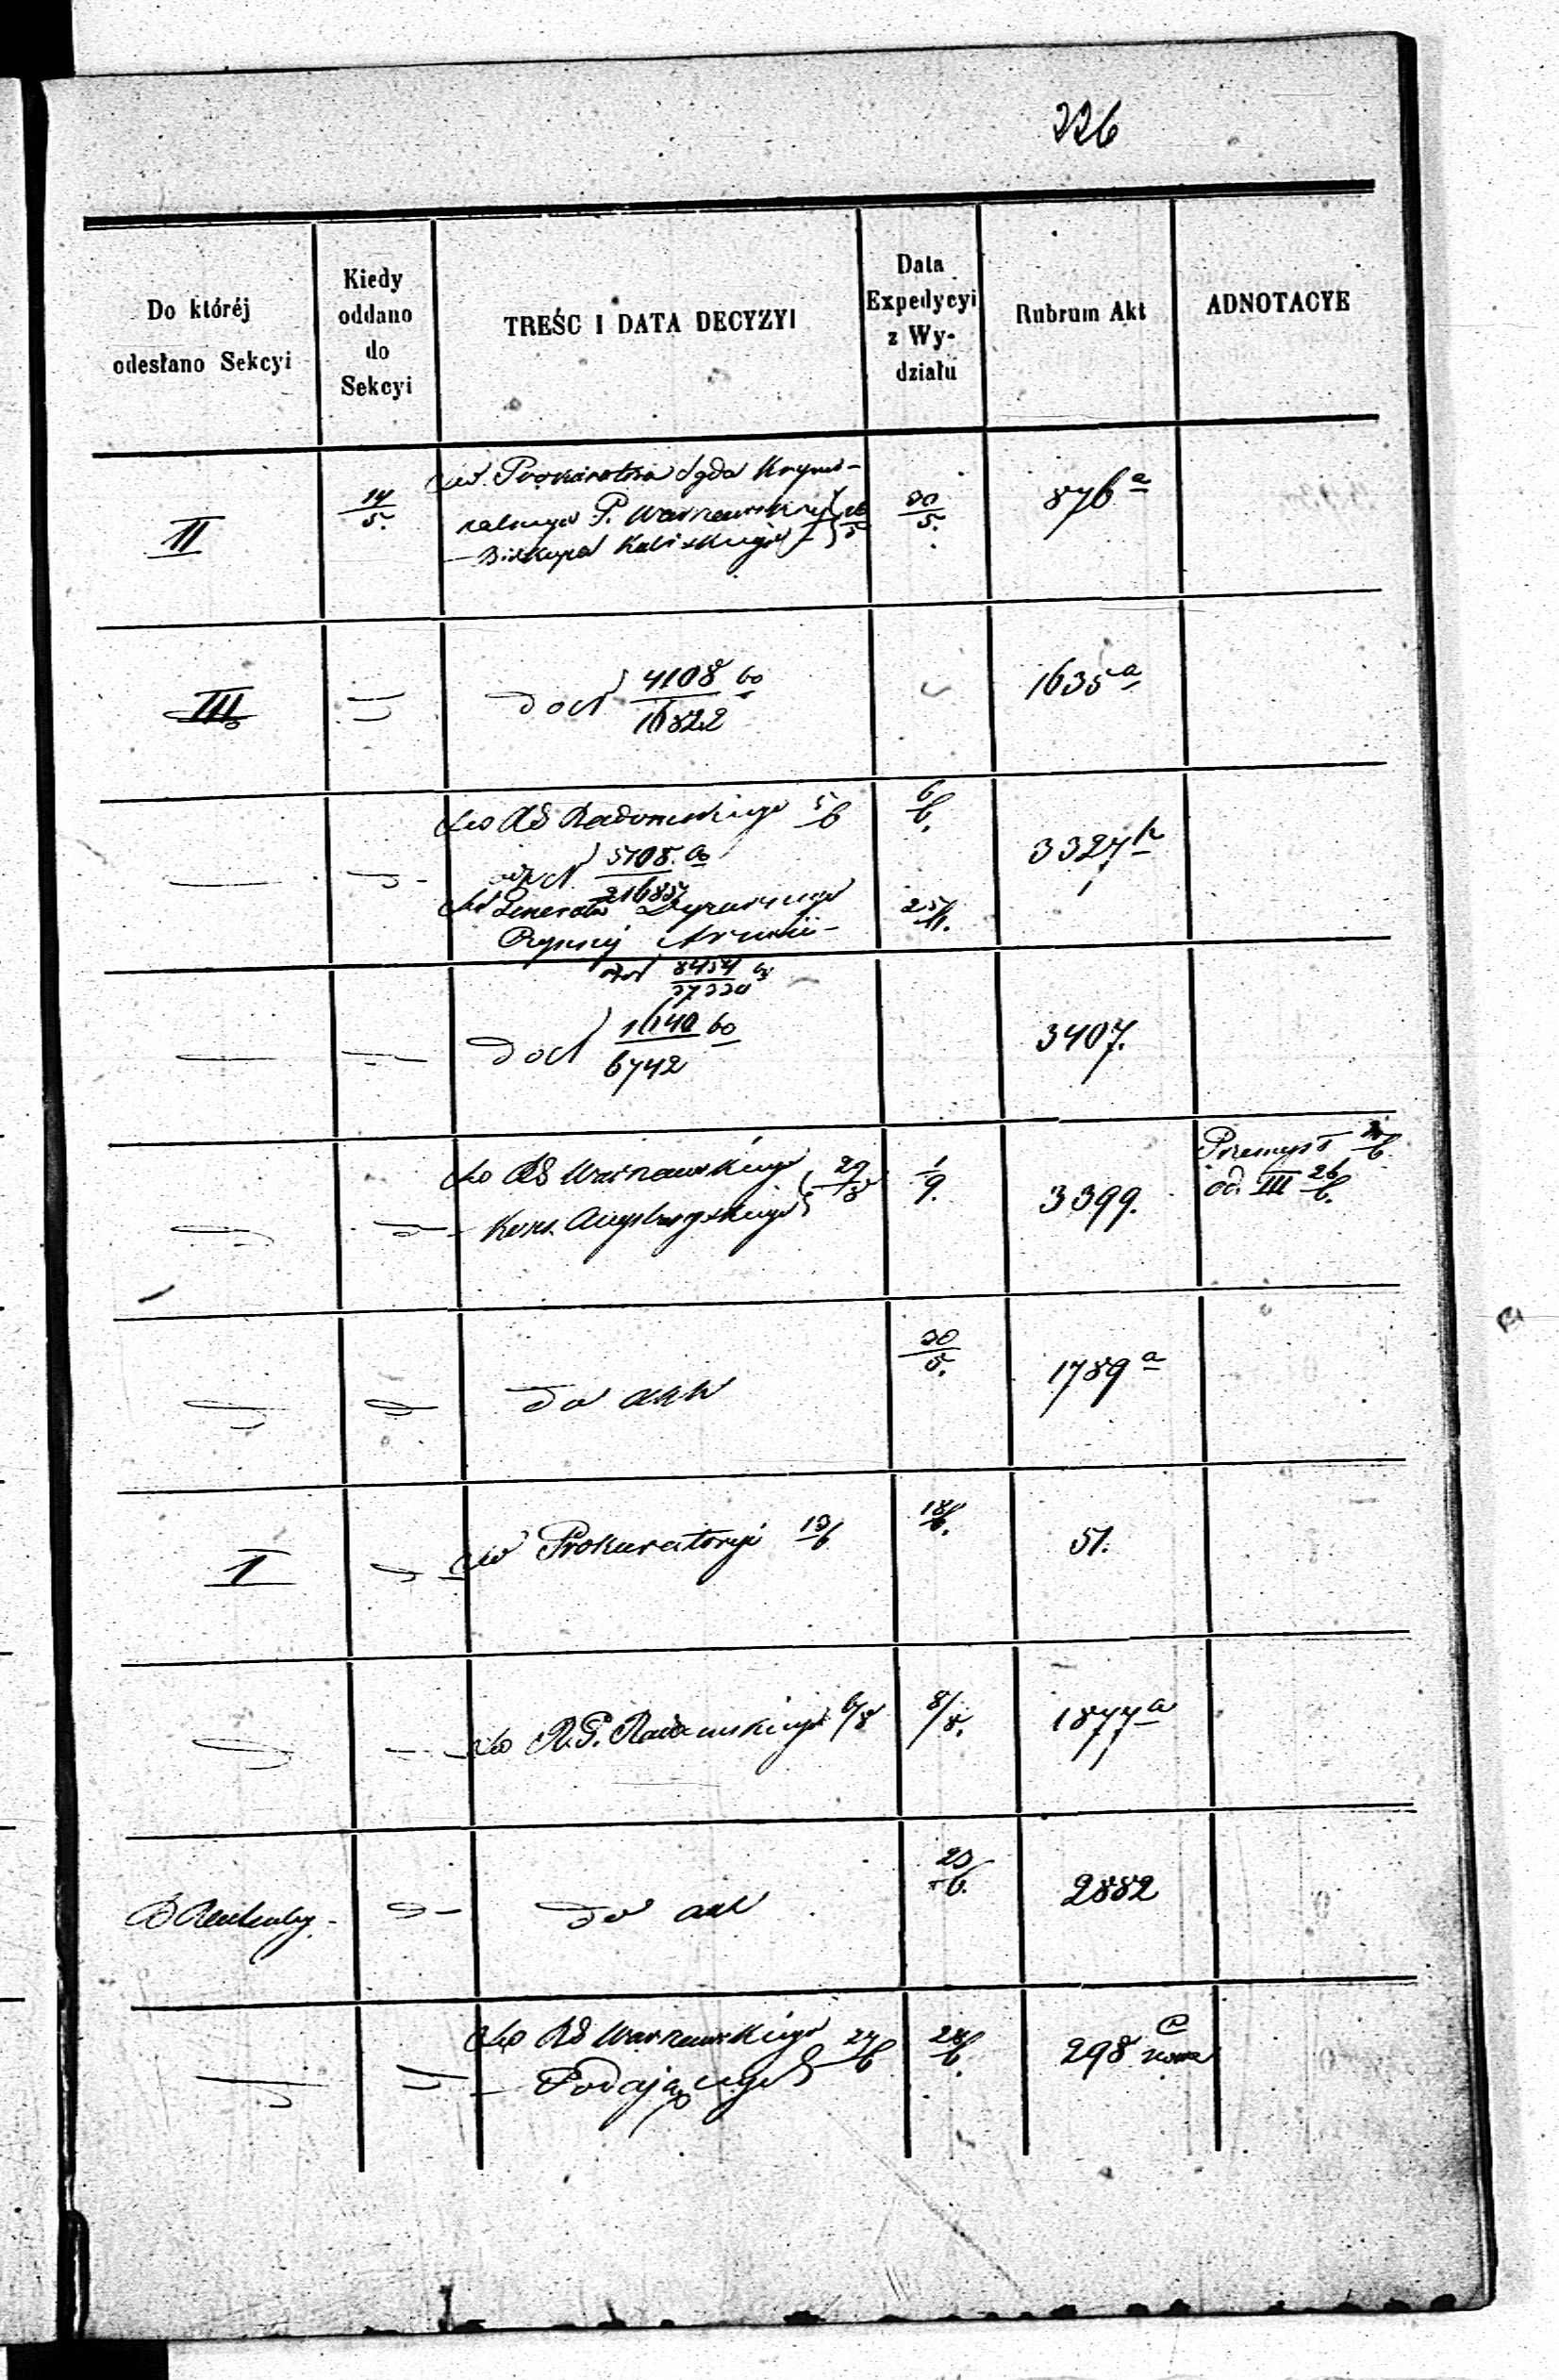 226
Do któréj
odesłano Sekcyi
Kiedy
oddano
do
Sekcyi
TREŚC I DATA DECYZYI
Data
Expedycyi
z Wy-
działu
Rubrum Akt
ADNOTACYE
II
14/5.
Do Prokuratora Sądu Krymi-
nalnego P. Warszawskiej
Biskupa Kaliskiego
30/5.
876 a
III
do N 4108 60
16822
1635 a
Do RG Radomskiego 5/6
6/6.
3327 h
5708. 60
216857
Do Generała Dyżurnego
Czynnej Armii
25/11.
8454
37330
do N 1640 60
6742
3407.
Do RG Warszawskiego 29/8
Kons. Augsburgskiego
1/9.
3399.
Przemysł
od. III 26/6.
do akt
30/5.
1789 a
I
Do Prokuratoryi 13/6
18/6.
51.
Do R.G. Radomskiego 6/8
8/8.
1877 a
do akt
23/6.
2882
Do RG Warszawskiego 27/6
Podającego
28/6.
298